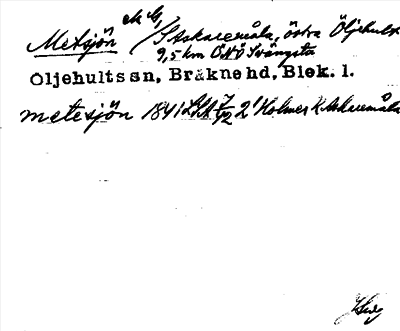 Metsjön /S Askaremåla, östra Öljehult
9,5 km ÖNÖ Svängsta
Öljehults sn, Bräkne hd, Blek. l.
metesjön 1841 LSA 7/42 2 Holmer k Askaremåla